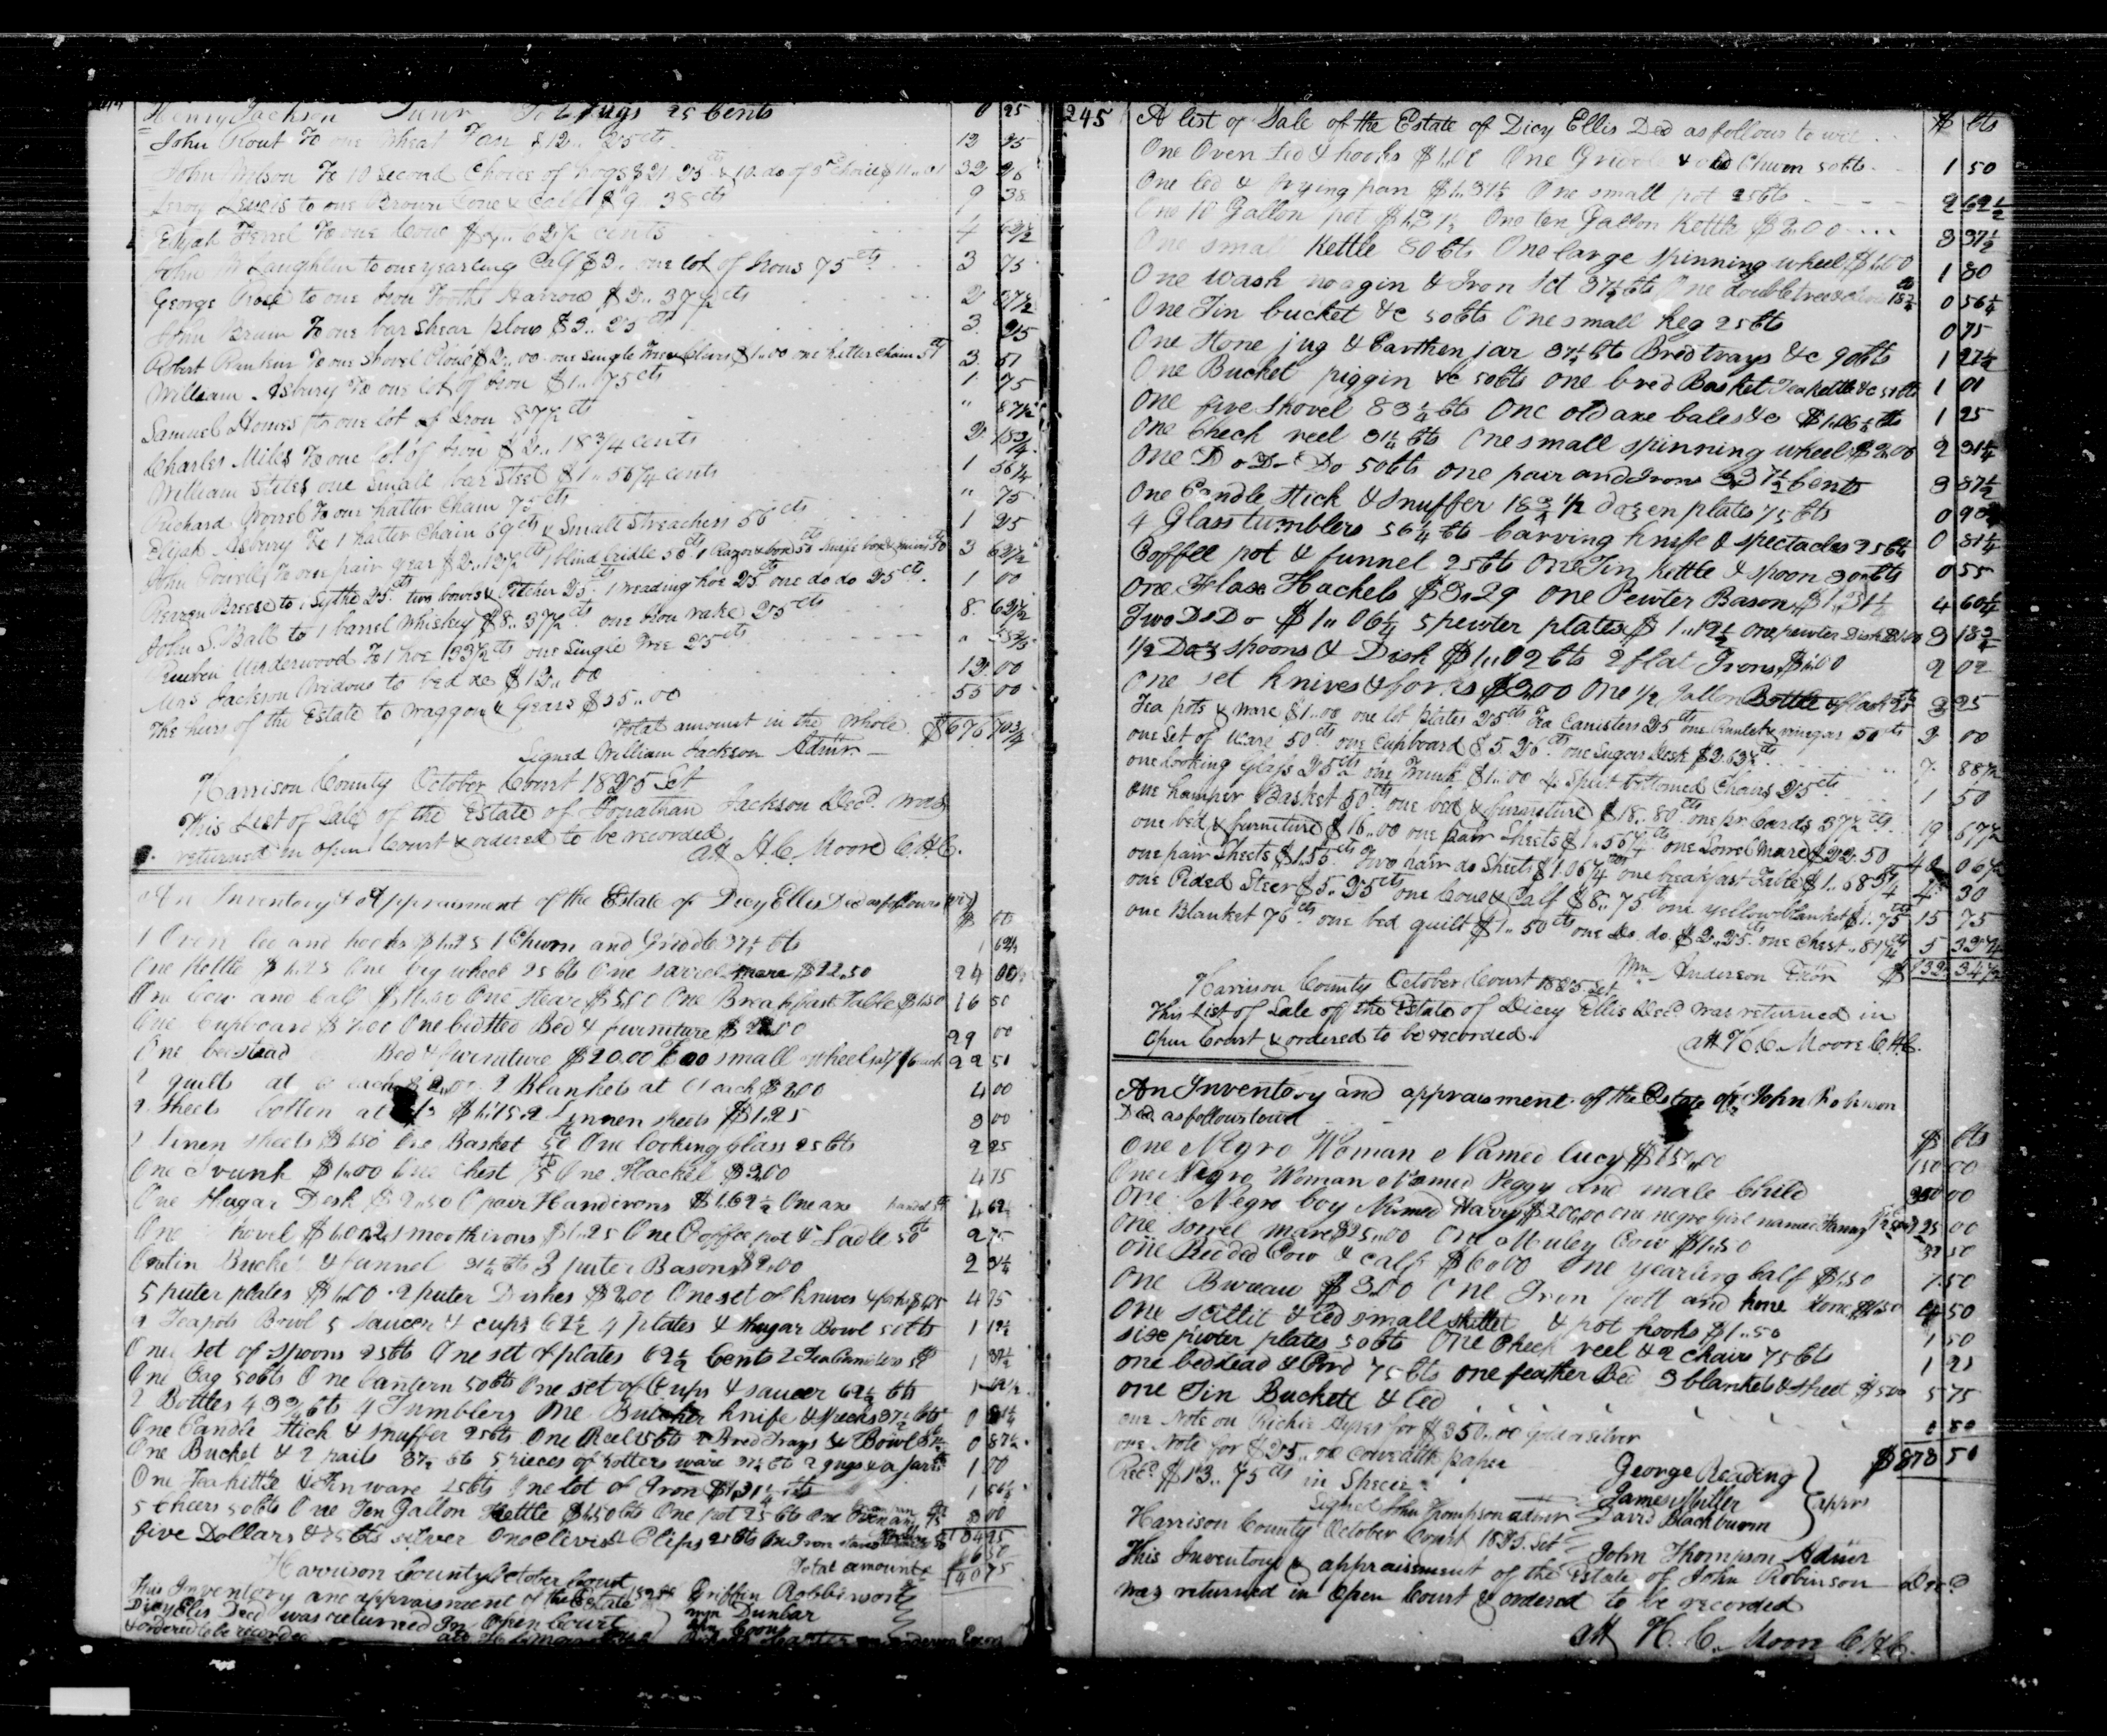 Henry Jackson Junr To 2 jugs 25 Cents 0 25
John Rout To one Wheat Fan $12.. 25cts 12 25
John Wilson To 10 Second Choice of hogs $21 25cts & 10 do of 3rd choice $11..01 32 26
Leroy Lewis to one Brown Cow & Calf $9 38cts 9 38
Elijah Ferrel To one Cow $4.. 62½ cents 4 62½
John McLaughlin to one yearling Calf $3.. one lot of hous 75cts 3 75
George Rose to one Iron Tooth Harrow $2.. 37½ cts 2 37½
John Brum To one bar Shear plow $3.. 25cts 3 25
Robert Rankin To one Shovel Plow $2..00 one single Tree & Clevis $1..00 one halter chain 51 3 51
William Asbury To one lot of Iron $1.. 75cts 1 75
Samuel Homes to one lot of Iron 87½ cts " 87½
Charles Miles To one lot of Iron $2.. 18¾ cents 2 18¾
William Stiles one small bar Steel $1.. 56¼ cents 1 56¼
Richard Gorrel To one halter Chain 75cts " 75
Elijah Asbury To 1 halter Chain 69cts & Small Streachers 56cts 1 25
John Powell To one pair gear $2..12½cts 1 blind bridle 50cts 1 Razor & box 50 Knife box & knives 50 3 62½
Perren Breese to 1 Sythe 25cts two bowls & Pitcher 25cts 1 weading hoe 25cts one do do 25cts 1 00
John S. Ball to 1 barrel Whiskey $8.. 37½cts one Iron rake 25cts 8 62½
Reuben Underwood To 1 hoe 33½cts one Single Tree 25cts
Mrs Jackson Widow to bed &c $12.. 00 12 00
The heirs of the Estate to waggon & Gears $55..00 55 00
Total amount in the whole $676 10¾
Signed William Jackson Admr
Harrison County October Court 1825 Sct
This List of Sale of the Estate of Jonathan Jackson Decd. was
returned in Open Court & ordered to be recorded
att H. C. Moore C.H.C.
An Inventory & Appraisment of the Estate of Dicy Ellis Decd as follows (viz)
$ cts
1 Oven led and hooks $1.25 1 Churn and Griddle 37½ cts 1 62½
One Kettle $1.25 One big wheel 25 cts One sarrel mare $22.50 24 00
One Cow and Calf $10.00 One Steare $5.00 One Breakfast Table $1.50 16 50
One Cupboard $7.00 One bedsted Bed & furniture $22.00 29 00
One bedstead Bed & furniture $20.00 Two small wheels 22 50
2 quilts at each $2.00 2 Blankets at each $2.00 4 00
2 Sheets Cotten at $1.75 2 Linnen sheets $1.25 3 00
2 Linen sheets $1.50 One Basket 50 One looking glass 25 cts 2 25
One Trunk $1.00 One Chest 75 One Hackel $3.00 4 75
One Shugar Desk $2.50 1 pair Handirons $1.62½ One axe 4 62½
One Shovel $1.00 2 Smoothirons $1.25 One Coffee pot & Ladle 50cts 2 75
One tin Bucket & funnel 31¼ cts 3 puter Basons $2.00 2 31¼
5 puter plates $1.00 2 puter Dishes $2.00 One set of Knives & forks $1.75 4 75
2 Teapots Bowl 5 Saucer & cups 62½ 4 plates & Shugar Bowl 50cts 1 12½
One set of spoons 25cts One set of plates 62½ Cents 2 Tea Canisters 50 1 37½
One Cag 50cts One Lantern 50cts One set of Cups & saucer 62½ cts 1 62½
2 Bottles 43¾ cts 4 Tumblers One Butcher Knife & Specks 37½ cts 0 81¼
One Candle Stick & snuffer 25cts One Reel 25cts 2 Bred Trays & Bowl 37½ 0 87½
One Bucket & 2 pails 37½ cts 5 pieces of Potters ware 37½ cts 2 jugs & a jar 1 00
One Teakittle & Tin ware 25cts One lot of Iron $1.31¼ cts 1 56¼
5 cheers 50cts One Ten Gallon Kettle $1.50cts One pot 25cts One 3 00
five Dollars & 75cts silver One Clevis & Clips 25cts 134 25
6 50
Total amount 140 75
Harrison County October Court
This Inventory and appraisment of the Estate of Griffin Robbinson
Dicy Ellis Decd was returned In Open Court Wm Dunbar
& ordered to be recorded att H. C. Moore
245 A list of Sale of the Estate of Dicy Ellis Decd as follows to wit $ cts
One Oven Led & hooks $1.00 One Griddle & old Churn 50cts 1 50
One led & frying pan $1.37½ One small pot 25cts 2 62½
One 10 Gallon pot $1.37½ One ten Gallon Kettle $2.00 3 37½
One small Kettle 80cts One large spinning wheel $1.00 1 80
One wash noagin & Iron Sct 37½ cts One doubletree & Clevis 18¾ 0 56¼
One Tin bucket &c 50cts One small Keg 25cts 0 75
One Stone jug & Earthen jar 37½ cts Bred trays &c 90cts 1 27½
One Bucket piggin &c 50cts one bred Basket Teakettle &c 51cts 1 01
One fire Shovel 83¼ cts One old axe bales &c $1.06¼ cts 1 25
One Check reel 31¼ cts One small spinning wheel $2.00 2 31¼
One Do Do Do 50cts one pair and Irons $3.37½ cents 3 87½
One Candle Stick & Snuffer 18¾ ½ dozen plates 75cts 0 93¾
4 Glass tumblers 56¼ cts Carving Knife & spectacles 25cts 0 81¼
Coffee pot & funnel 25cts One Tin Kettle & spoon 30cts 0 55
One Flax Hachels $3.29 One Pewter Bason $1.31¼ 4 60¼
Two Do Do $1..06¼ 5 pewter plates $1..12½ One pewter Dish $1.00 3 18¾
½ Doz spoons & Dish $1..02cts 2 flat Irons $1.00 2 02
One set Knives & forks $2.00 One ½ Gallon Bottle & flask 25 2 25
Tea pots & ware $1..00 one lot plates 25cts Tea Canisters 25cts one Runlet & vinegar 50cts 2 00
one Set of Ware 50cts one Cupboard $5.26cts one Sugar Desk $2.63¾cts
one looking Glass 25cts one Trunk $1..00 4 Split bottomed Chairs 25cts 7 88½
one hamper Basket 50cts one bed & furniture $18..80cts one pr Cards 37½ cts 1 50
one bed & furniture $16..00 one pair Sheets $1..56¼cts one Sorrel Mare $22.50 19 67½
one pair Sheets $1.55cts Two pair do Sheets $1.06¼cts one breakfast Table $1..68¾ 40 06¼
one Pided Steer $5..25cts one Cow & Calf $8..75cts one yellow blanket $1..75cts 4 30
one Blanket 76cts one bed quilt $1..50cts one do. do. $2..25cts one Chest ..81¼cts 15 75
5 32¼
Wm Anderson Exor $132 34½
Harrison County October Court 1825 Sct
This List of Sale of the Estate of Dicey Ellis Decd was returned in
Open Court & ordered to be recorded
att H. C. Moore C.H.C.
An Inventory and appraisment of the Estate of John Robinson
Decd as follows towit
$ cts
One Negro Woman Named Lucy $150.00 150 00
One Negro Woman Named Peggy and male Child 350 00
One Negro boy Named Harry $200.00 one negro Girl named Fanny 325 00
One sorrel mare $25..00 One Muley Cow $7.50 32 50
One Pieded Cow & calf $6.00 One yearling Calf $1.50 7 50
One Bureau $3.00 One Iron pott and hone Stone $1.50 4 50
One scillit & led small skillet & pot hooks $1..50 1 50
Six pewter plates 50cts One Check reel & 2 chairs 75cts 1 25
one bedstead & Cord 75cts one feather Bed 3 blankets & sheet $5.00 5 75
one Tin Buckett & led 0 50
one Note on Richie Ayres for $350.00 gold or silver
one Note for $25..00 Comwealth paper $878 50
Recd. $13.. 75cts in Specie George Reading
Signed John Thompson admr James Miller
David Blackburn apprs
Harrison County October Court 1825. Sct John Thompson Admr
This Inventory & appraisment of the Estate of John Robinson Decd
was returned in Open Court & ordered to be recorded
att H. C. Moore C.H.C.